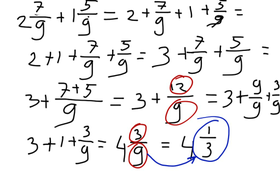 2 7/9 + 1 5/9 = 2 + 7/9 + 1 + 5/9 =
2 + 1 + 7/9 + 5/9 = 3 + 7/9 + 5/9 =
3 + 7+5/9 = 3 + 12/9 = 3 + 9/9 + 3/9
3 + 1 + 3/9 = 4 3/9 = 4 1/3